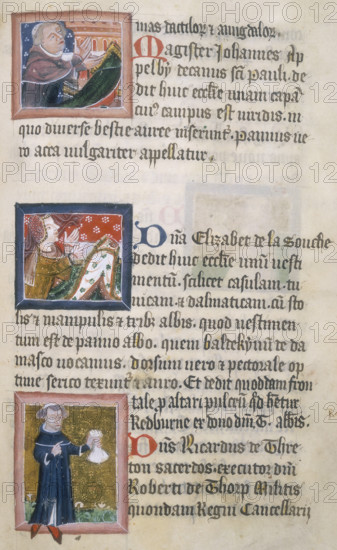 mas dactilor⁊ & amigdalor⁊.
Magister Johannes Ap
pelby decanus sci Pauli. de
dit huic eccliē unam capā
cui⁹ campus est viridis. in
quo diuerse bestie auree inserunt᷑. Pannus ve
ro acca vulgariter appellatur.
Dn̄a Elizabet de la Souche
dedit huic eccliē unū vesti
mentū. scilicet casulam. tu
nicam. & dalmaticam. cū sto
lis & manipulis & trib⁹ albis. quod vestimen
tum est de panno albo. quem baldekynū de da
masco vocamus. dorsum vero & pectorale op
time serico texunt᷑ & auro. Et dedit quoddam fron
tale p altari pulcrū
Redburne ex dono dn̄i T. abbis.
Dn̄s Ricardus de Thre
ton sacerdos. executor dn̄i
Roberti de Thorp Militis
quondam Regni Cancellarii
PHOTO12